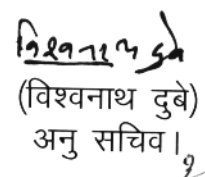 विश्वनाथ दुबे
(विश्वनाथ दुबे)
अनु सचिव।